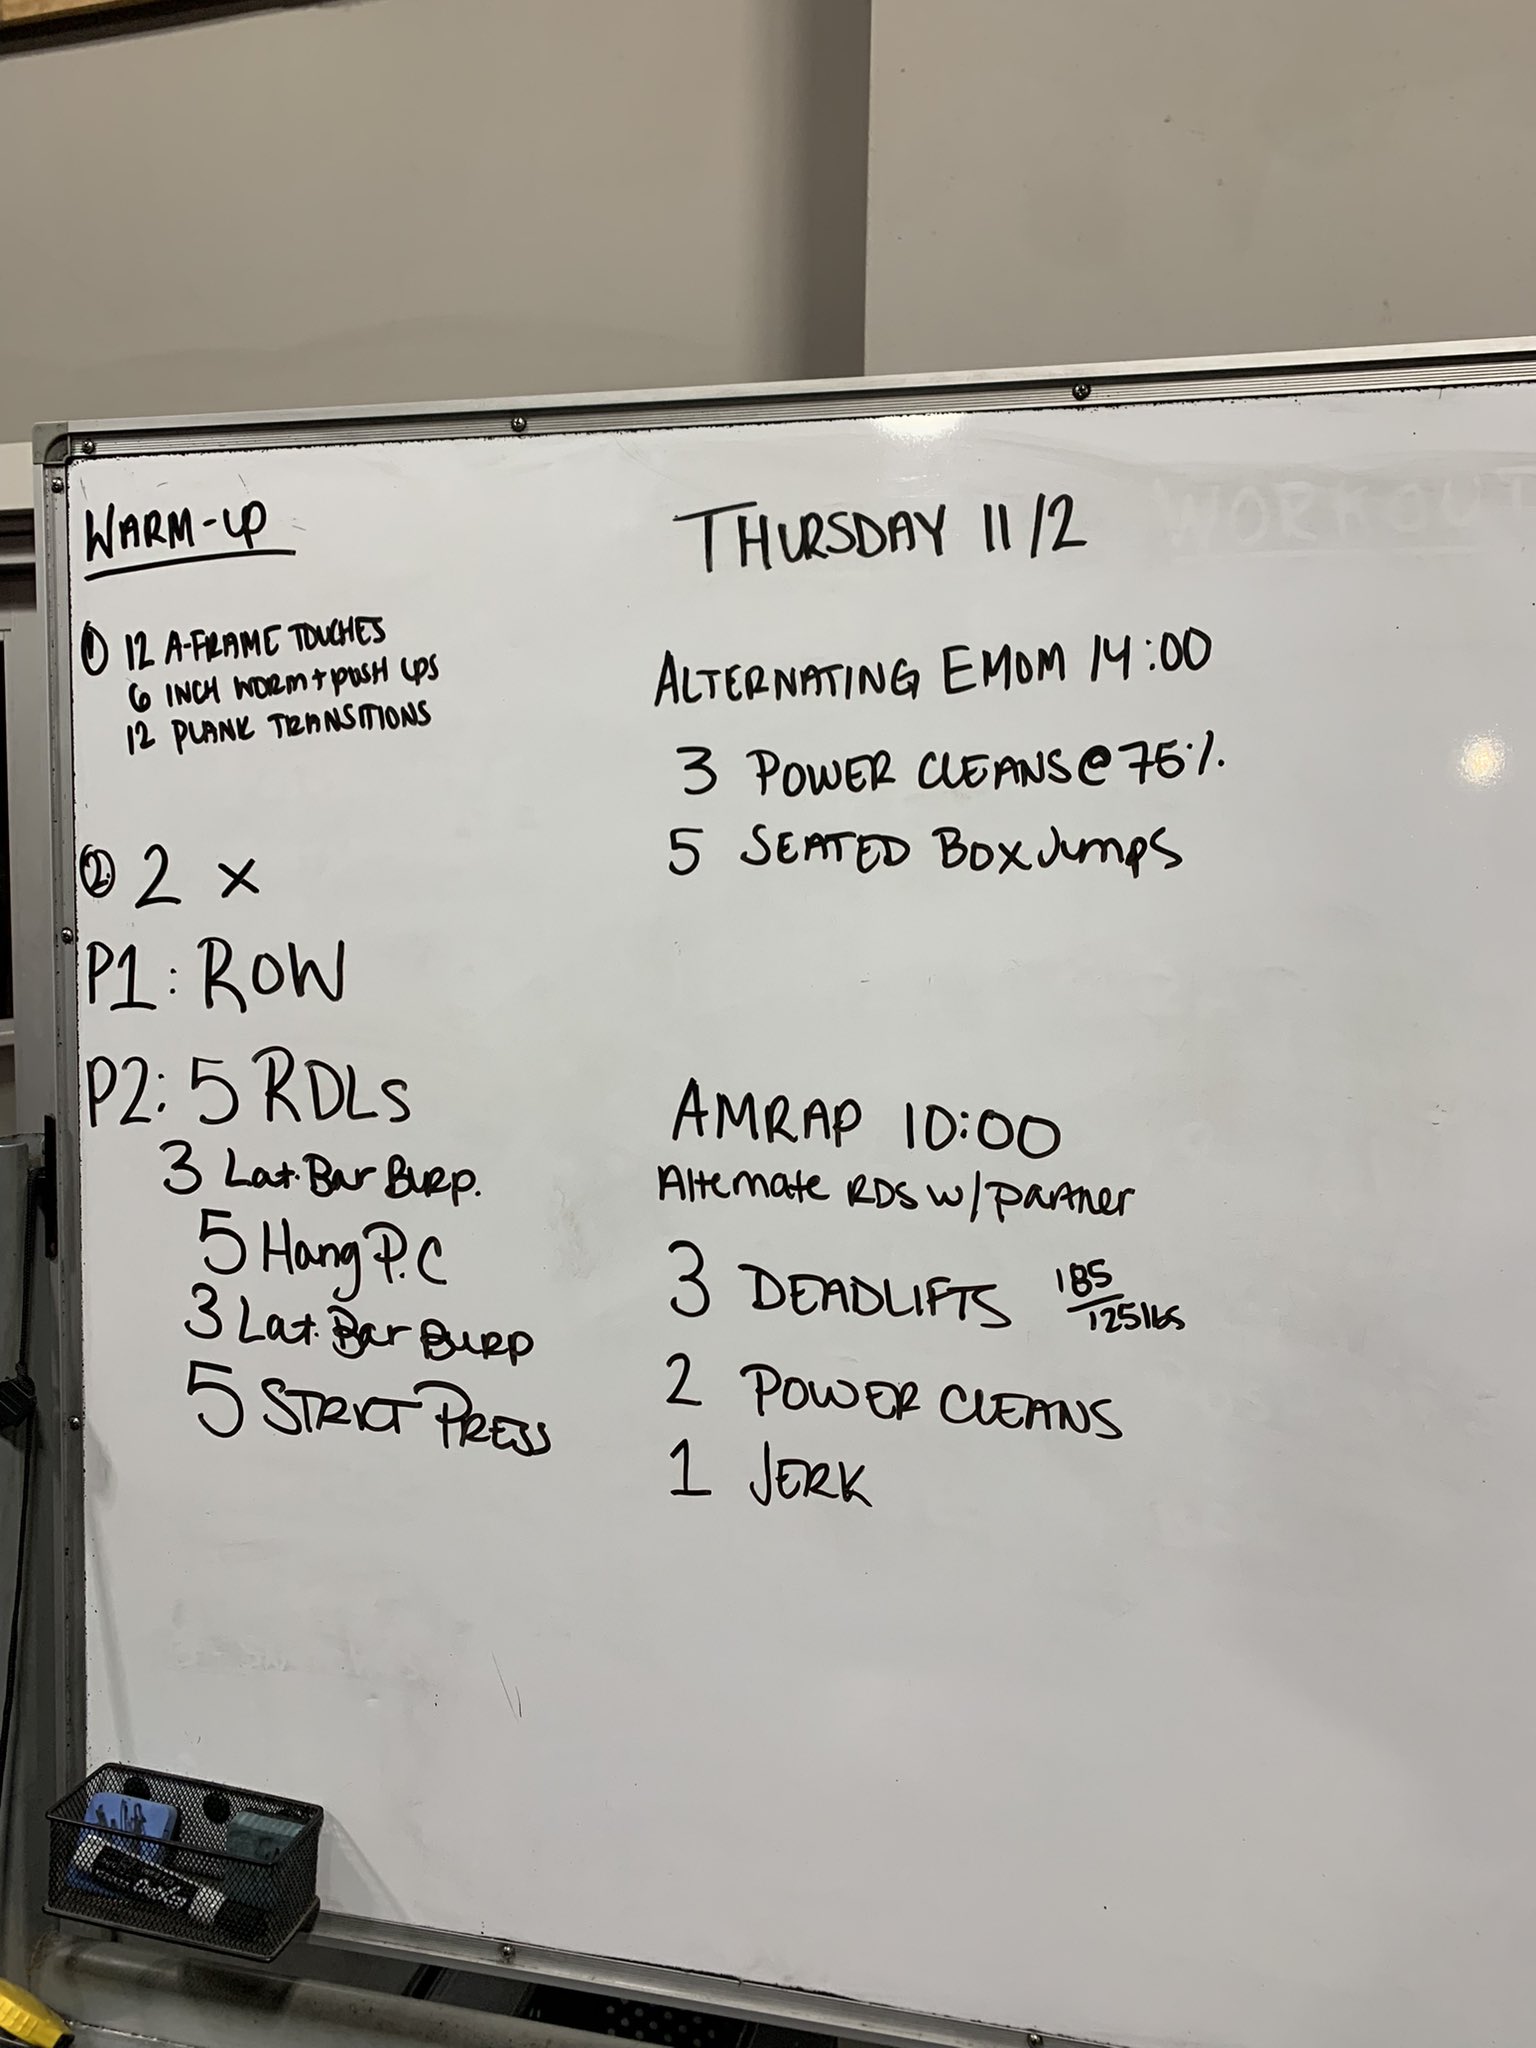 WARM-UP
① 12 A-FRAME TOUCHES
6 INCH WORM + PUSH UPS
12 PLANK TRANSITIONS
② 2 x
P1: ROW
P2: 5 RDLs
3 Lat. Bar Burp.
5 Hang P.C
3 Lat. Bar Burp
5 STRICT PRESS
THURSDAY 11/2
WORKOUT
ALTERNATING EMOM 14:00
3 POWER CLEANS @ 75%
5 SEATED BOX Jumps
AMRAP 10:00
Alternate RDS w/ partner
3 DEADLIFTS 185/125lbs
2 POWER CLEANS
1 JERK